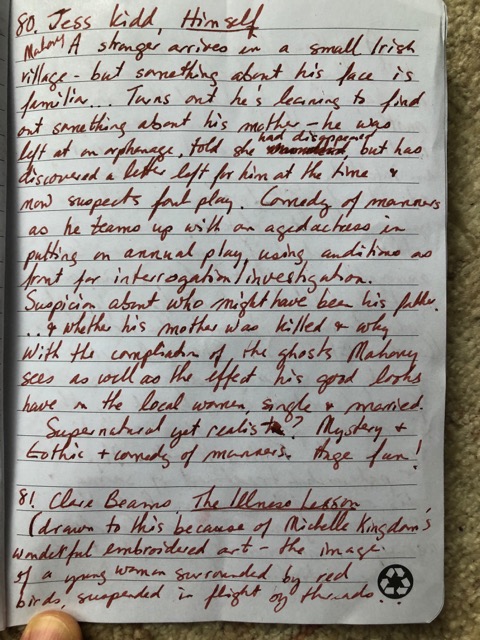 80. Jess Kidd, Himself
Mahony A stranger arrives in a small Irish
village - but something about his face is
familiar... Turns out he's learning to find
out something about his mother - he was
left at an orphanage, told she had disappeared, but has
discovered a letter left for him at the time &
now suspects foul play. Comedy of manners
as he teams up with an aged actress in
putting on annual play, using auditions as
front for interrogation/investigation.
Suspicion about who might have been his father.
... & whether his mother was killed & why
With the complication of the ghosts Mahony
sees as well as the effect his good looks
have on the local women, single & married.
Supernatural yet realist? Mystery +
Gothic + comedy of manners. Huge fun!
81. Clare Beams, The Illness Lesson
(drawn to this because of Michelle Kingdom's
wonderful embroidered art - the image
of a young woman surrounded by red
birds, suspended in flight by threads...